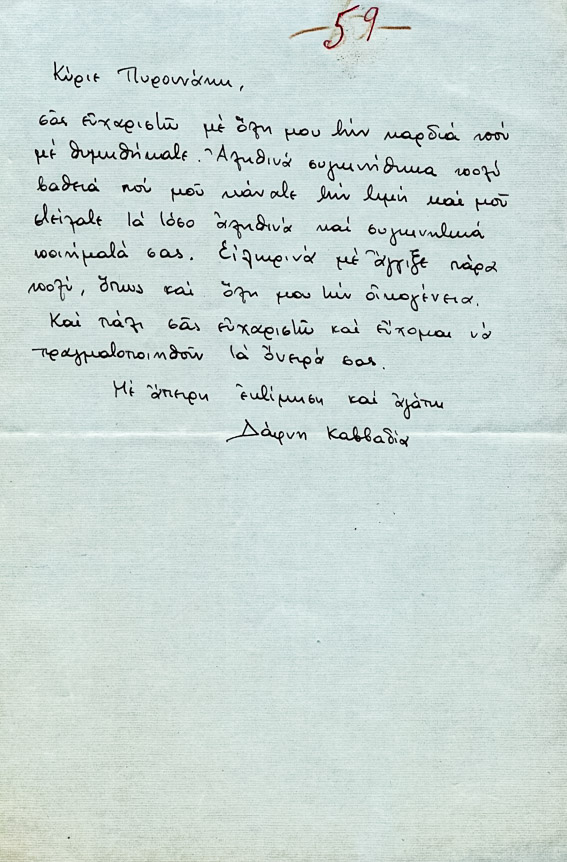 -59-
Κύριε Πυρουνάκη,
σᾶς εὐχαριστῶ μέ ὅλη μου τήν καρδιά πού
μέ θυμηθήκατε. Ἀληθινά συγκινήθηκα πολύ
βαθειά πού μοῦ κάνατε τήν τιμή καί μοῦ
στείλατε τά τόσο ἀληθινά καί συγκινητικά
ποιήματά σας. Εἰλικρινά μέ ἄγγιξε πάρα
πολύ, ὅπως καί ὅλη μου τήν οἰκογένεια.
Καί πάλι σᾶς εὐχαριστῶ καί εὔχομαι νά
πραγματοποιηθοῦν τά ὄνειρά σας.
Μέ ἄπειρη ἐκτίμηση καί ἀγάπη
Δάφνη Καββαδία